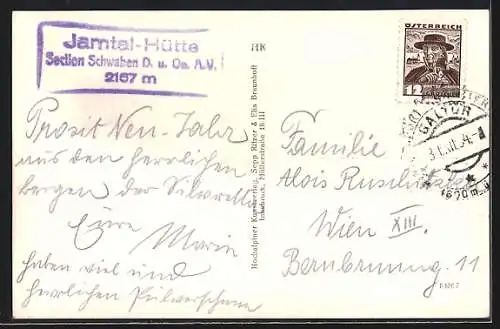 Jamtal-Hütte
Section Schwaben D. u. Oe. A.V.
2167 m
Prosit Neu-Jahr
aus den herrlichen
Bergen der Silvretta
Eure Marie
haben viel und
herrlichen Pulverschnee
Hochalpiner Kunstverlag, Sepp Ritzer & Elka Braunhoff
Innsbruck, Müllerstraße 18 III
ÖSTERREICH
12
GALTÜR
Familie
Alois
Wien XIII.
11